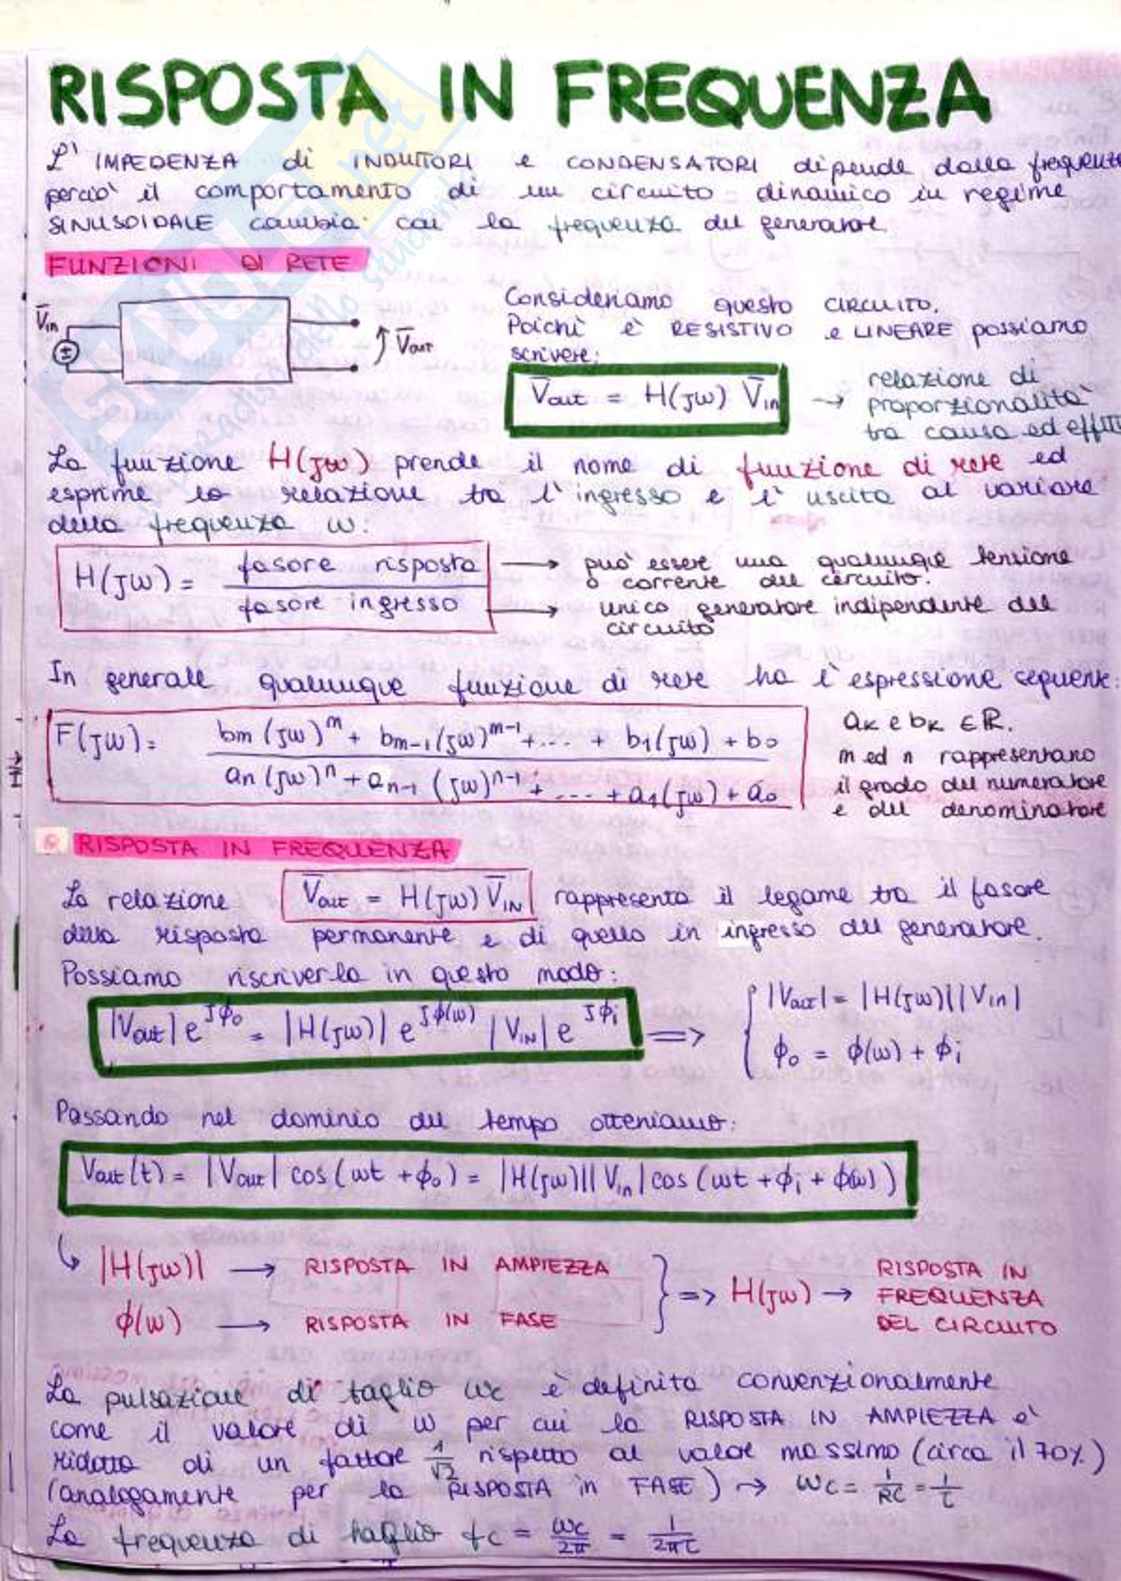 RISPOSTA IN FREQUENZA
L' IMPEDENZA di INDUTTORI e CONDENSATORI dipende dalla frequenza
perciò il comportamento di un circuito dinamico in regime
SINUSOIDALE cambia con la frequenza del generatore.
FUNZIONI DI RETE
V̅in
V̅out
Consideriamo questo CIRCUITO.
Poichè è RESISTIVO e LINEARE possiamo
scrivere:
V̅out = H(jω) V̅in → relazione di
proporzionalità
tra causa ed effett
La funzione H(jω) prende il nome di funzione di rete ed
esprime la relazione tra l'ingresso e l'uscita al variare
della frequenza ω:
H(jω) = fasore risposta / fasore ingresso
→ può essere una qualunque tensione
o corrente del circuito.
→ unico generatore indipendente del
circuito
In generale qualunque funzione di rete ha l'espressione seguente:
F(jω) = bm (jω)^m + bm-1 (jω)^m-1 + ... + b1(jω) + b0 / an (jω)^n + an-1 (jω)^n-1 + ... + a1(jω) + a0
aK e bK ∈ ℝ.
m ed n rappresentano
il grado del numeratore
e del denominatore
RISPOSTA IN FREQUENZA
La relazione V̅out = H(jω) V̅IN rappresenta il legame tra il fasore
della risposta permanente e di quello in ingresso del generatore.
Possiamo riscriverla in questo modo:
|Vout| e^jϕo = |H(jω)| e^jϕ(ω) |VIN| e^jϕi ⟹ { |Vout| = |H(jω)||Vin|
ϕo = ϕ(ω) + ϕi
Passando nel dominio del tempo otteniamo:
Vout(t) = |Vout| cos(ωt + ϕo) = |H(jω)||Vin| cos(ωt + ϕi + ϕ(ω))
↳ |H(jω)| → RISPOSTA IN AMPIEZZA
ϕ(ω) → RISPOSTA IN FASE
} => H(jω) → RISPOSTA IN
FREQUENZA
DEL CIRCUITO
La pulsazione di taglio ωc è definita convenzionalmente
come il valore di ω per cui la RISPOSTA IN AMPIEZZA è
ridotta di un fattore 1/√2 rispetto al valore massimo (circa il 70%)
(analogamente per la RISPOSTA in FASE) → ωc = 1/RC = 1/τ
La frequenza di taglio fc = ωc/2π = 1/2πτ